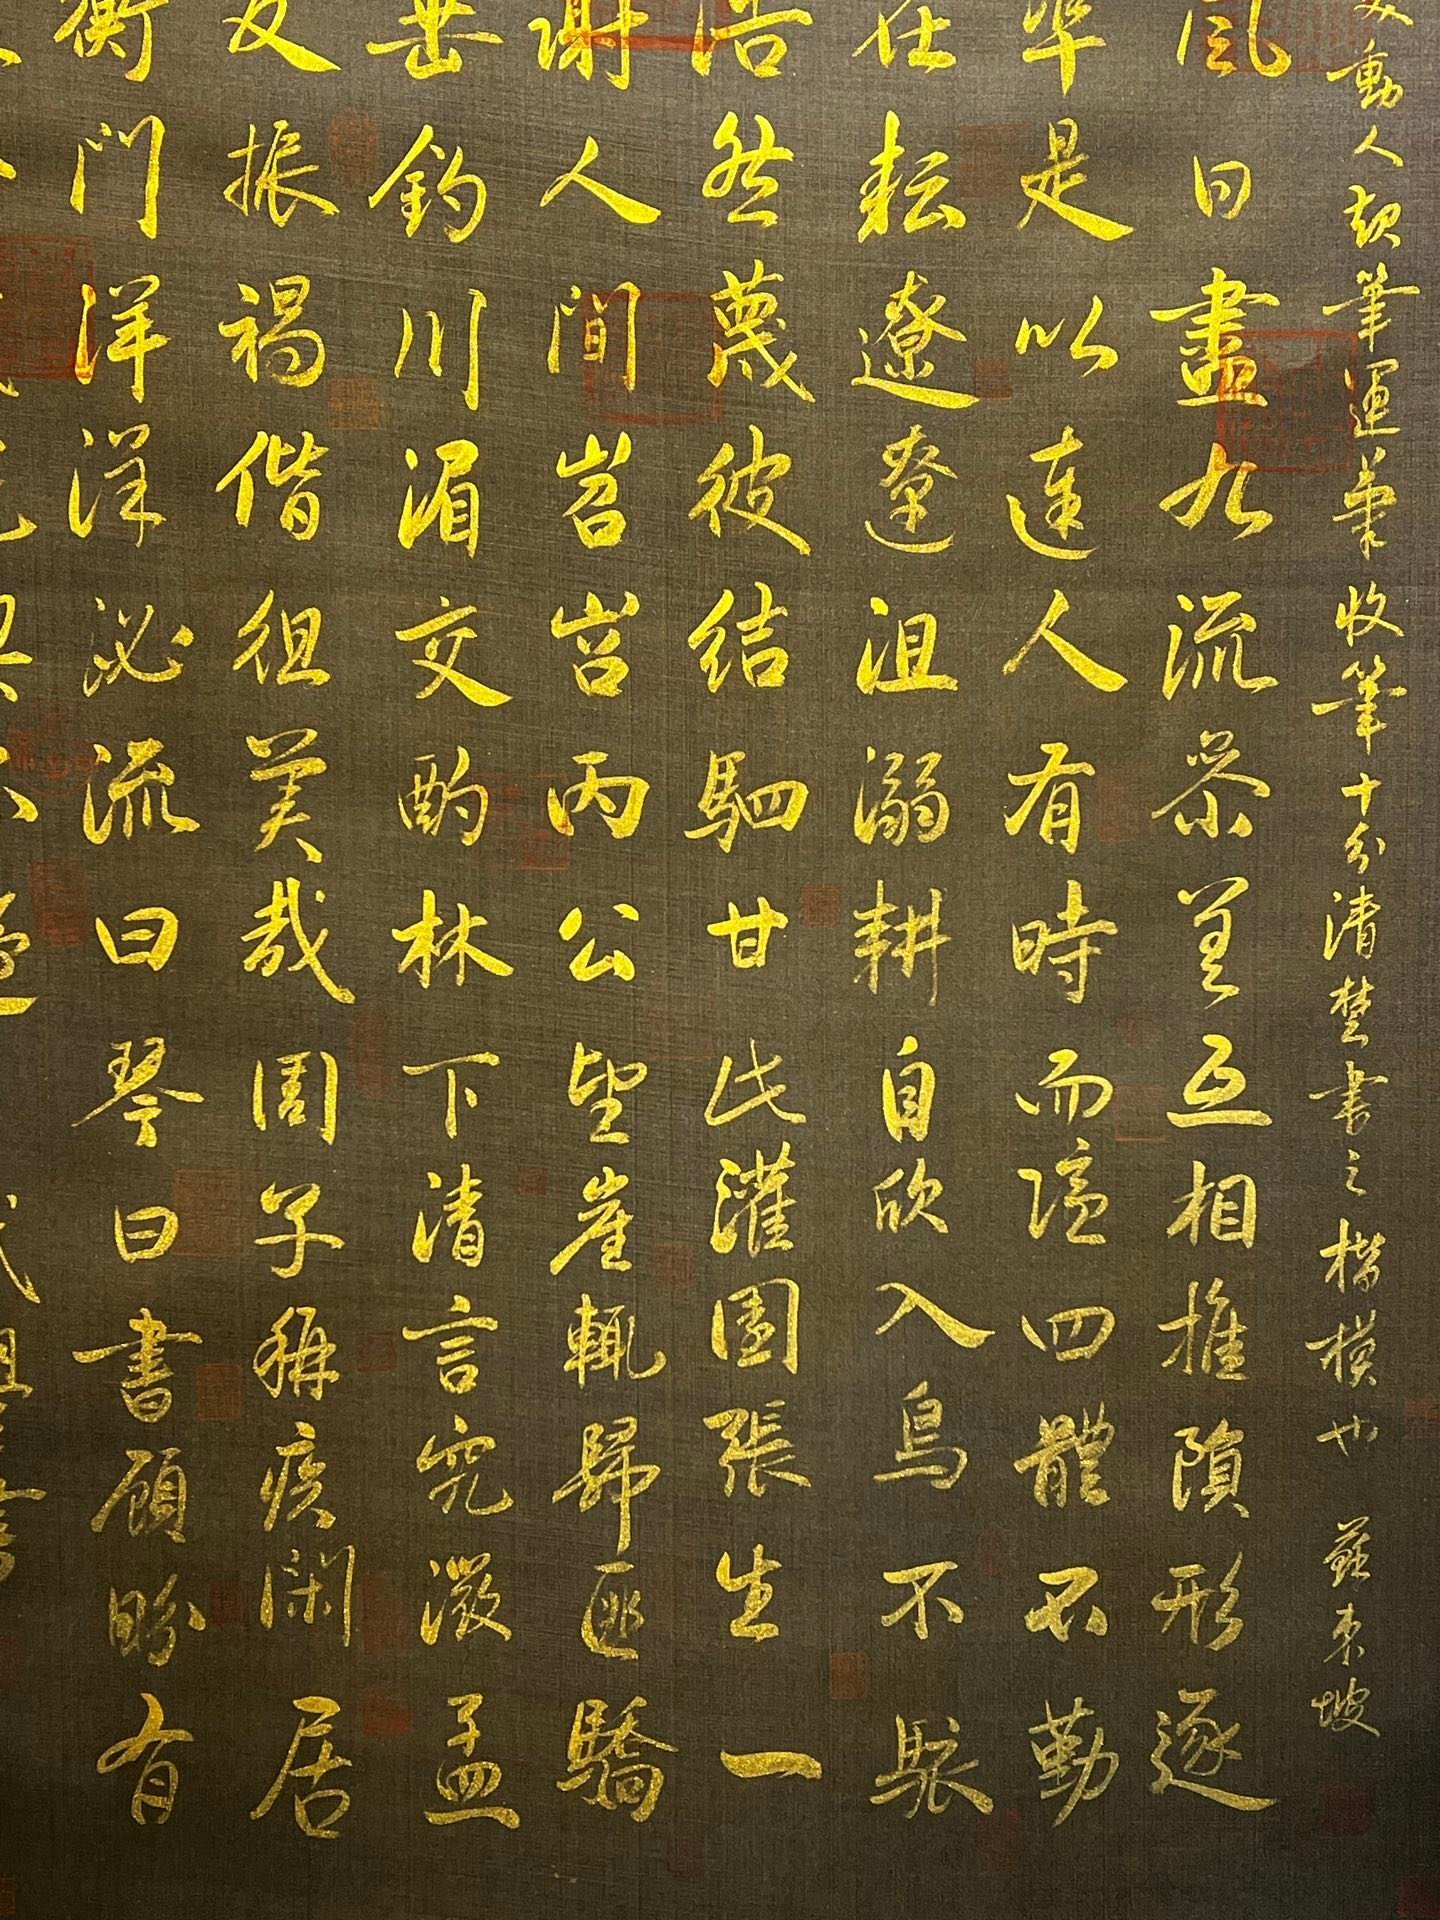 動人起筆運筆收筆十分清楚書之楷模也 蘇東坡
風日盡九流叅差互相推隕形逐
準是以達人有時而隱四體不勤
在耘遼遼沮溺耕自欣入鳥不駭
浩然蔑彼結駟甘此灌園張生一
謝人間岧岧丙公望崖輒歸匪驕
垂釣川湄交酌林下清言究微孟
友振褐偕徂美哉周子稱疾閑居
衡門洋洋泌流曰琴曰書顧盼有